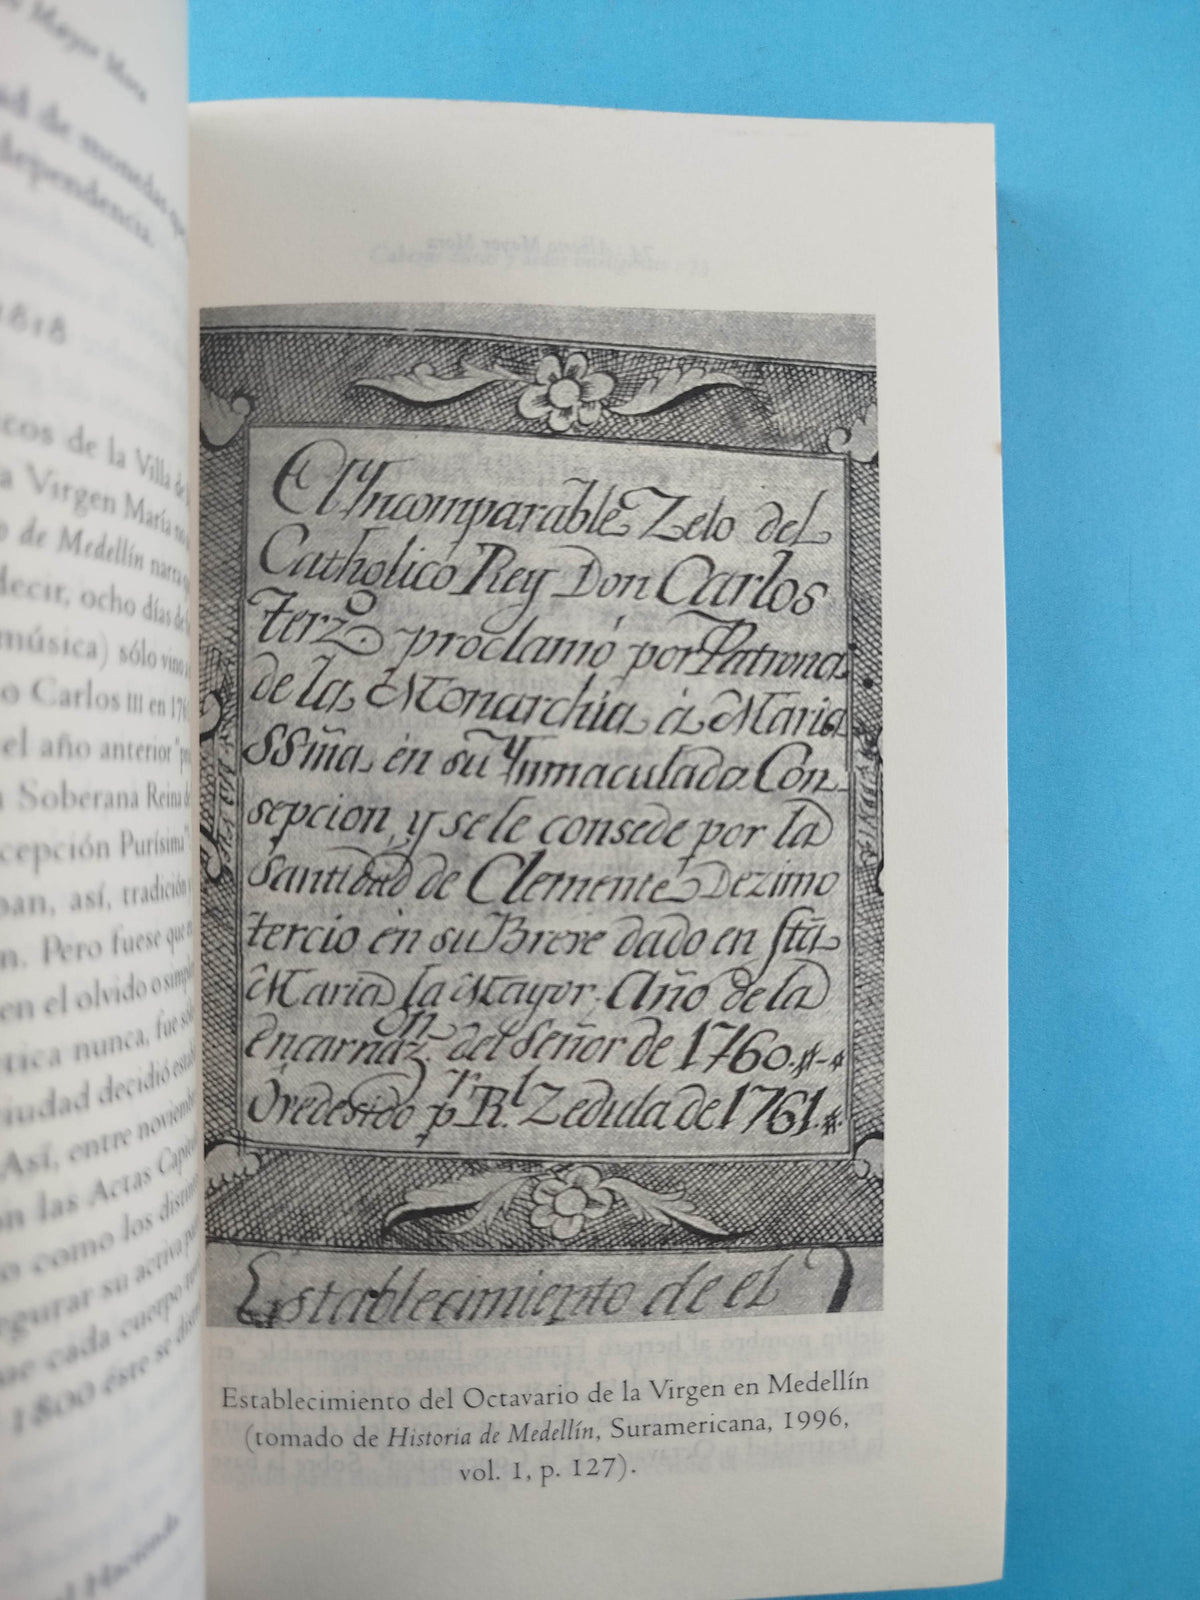 Mayor Mora
ad de monedas que
dependencia.
1818
cos de la Villa de
a Virgen María no
o de Medellín narra
decir, ocho días de
música) sólo vino
o Carlos III en 176
el año anterior "pr
a Soberana Reina de
cepción Purísima".
ban, así, tradición
n. Pero fuese que
en el olvido o simple
ética nunca, fue sólo
ciudad decidió estab
Así, entre noviembre
on las Actas Capit
o como los distin
egurar su activa pa
ue cada cuerpo
1800 éste se
al Hacienda
El Yncomparable Zelo del
Catholico Rey Don Carlos
terzº. proclamó por Patrona
de la Monarchia á Maria
SSm̃a en su Ynmaculada Con
sepcion, y se le consede por la
Santidad de Clemente Dezimo
tercio en su Breve dado en Stã
Maria la Mayor, Año de la
encarnazon. del Señor de 1760.
Ovedesido pr Rl. Zedula de 1761.
Establecimiento de el
Establecimiento del Octavario de la Virgen en Medellín
(tomado de Historia de Medellín, Suramericana, 1996,
vol. 1, p. 127).